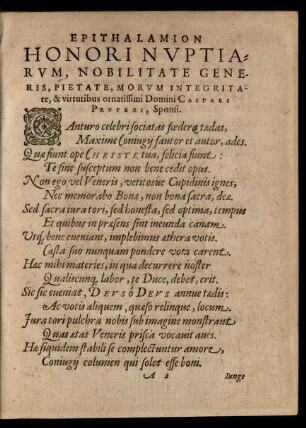 EPITHALAMION
HONORI NVPTIA-
RVM, NOBILITATE GENE-
RIS, PIETATE, MORVM INTEGRITA-
te, & virtutibus ornatissimi Domini CASPARI
PRVFERI, Sponsi.
CAnturo celebri sociatas fœdere tædas,
Maxime Coniugÿ fautor et autor, ades.
Quæ fiunt ope CHRISTE tua, felicia fiunt:
Te sine susceptum non bene cedit opus.
Non ego vel Veneris, vetitosve Cupidinis ignes,
Nec memorabo Bonæ, non bona sacra, deæ.
Sed sacra iura tori, sed honesta, sed optima, tempus
Et quibus in præsens sint ineunda canam.
Utq; bene eveniant, implebimus æthera votis.
Casta suo nunquam pondere vota carent.
Hac mihi materies, in qua decurrere noster
Qualiscunq; labor, te Duce, debet, erit.
Sic sic eveniat, DEVS ô DEVS annue tædis:
Ac votis aliquem, quæso relinque, locum.
Jura tori pulchra nobis sub imagine monstrant
Quas ætas Veneris prisca vocavit aves.
Hæ siquidem stabili se complectuntur amore,
Coniugÿ columen qui solet esse boni.
A 2 Iunge